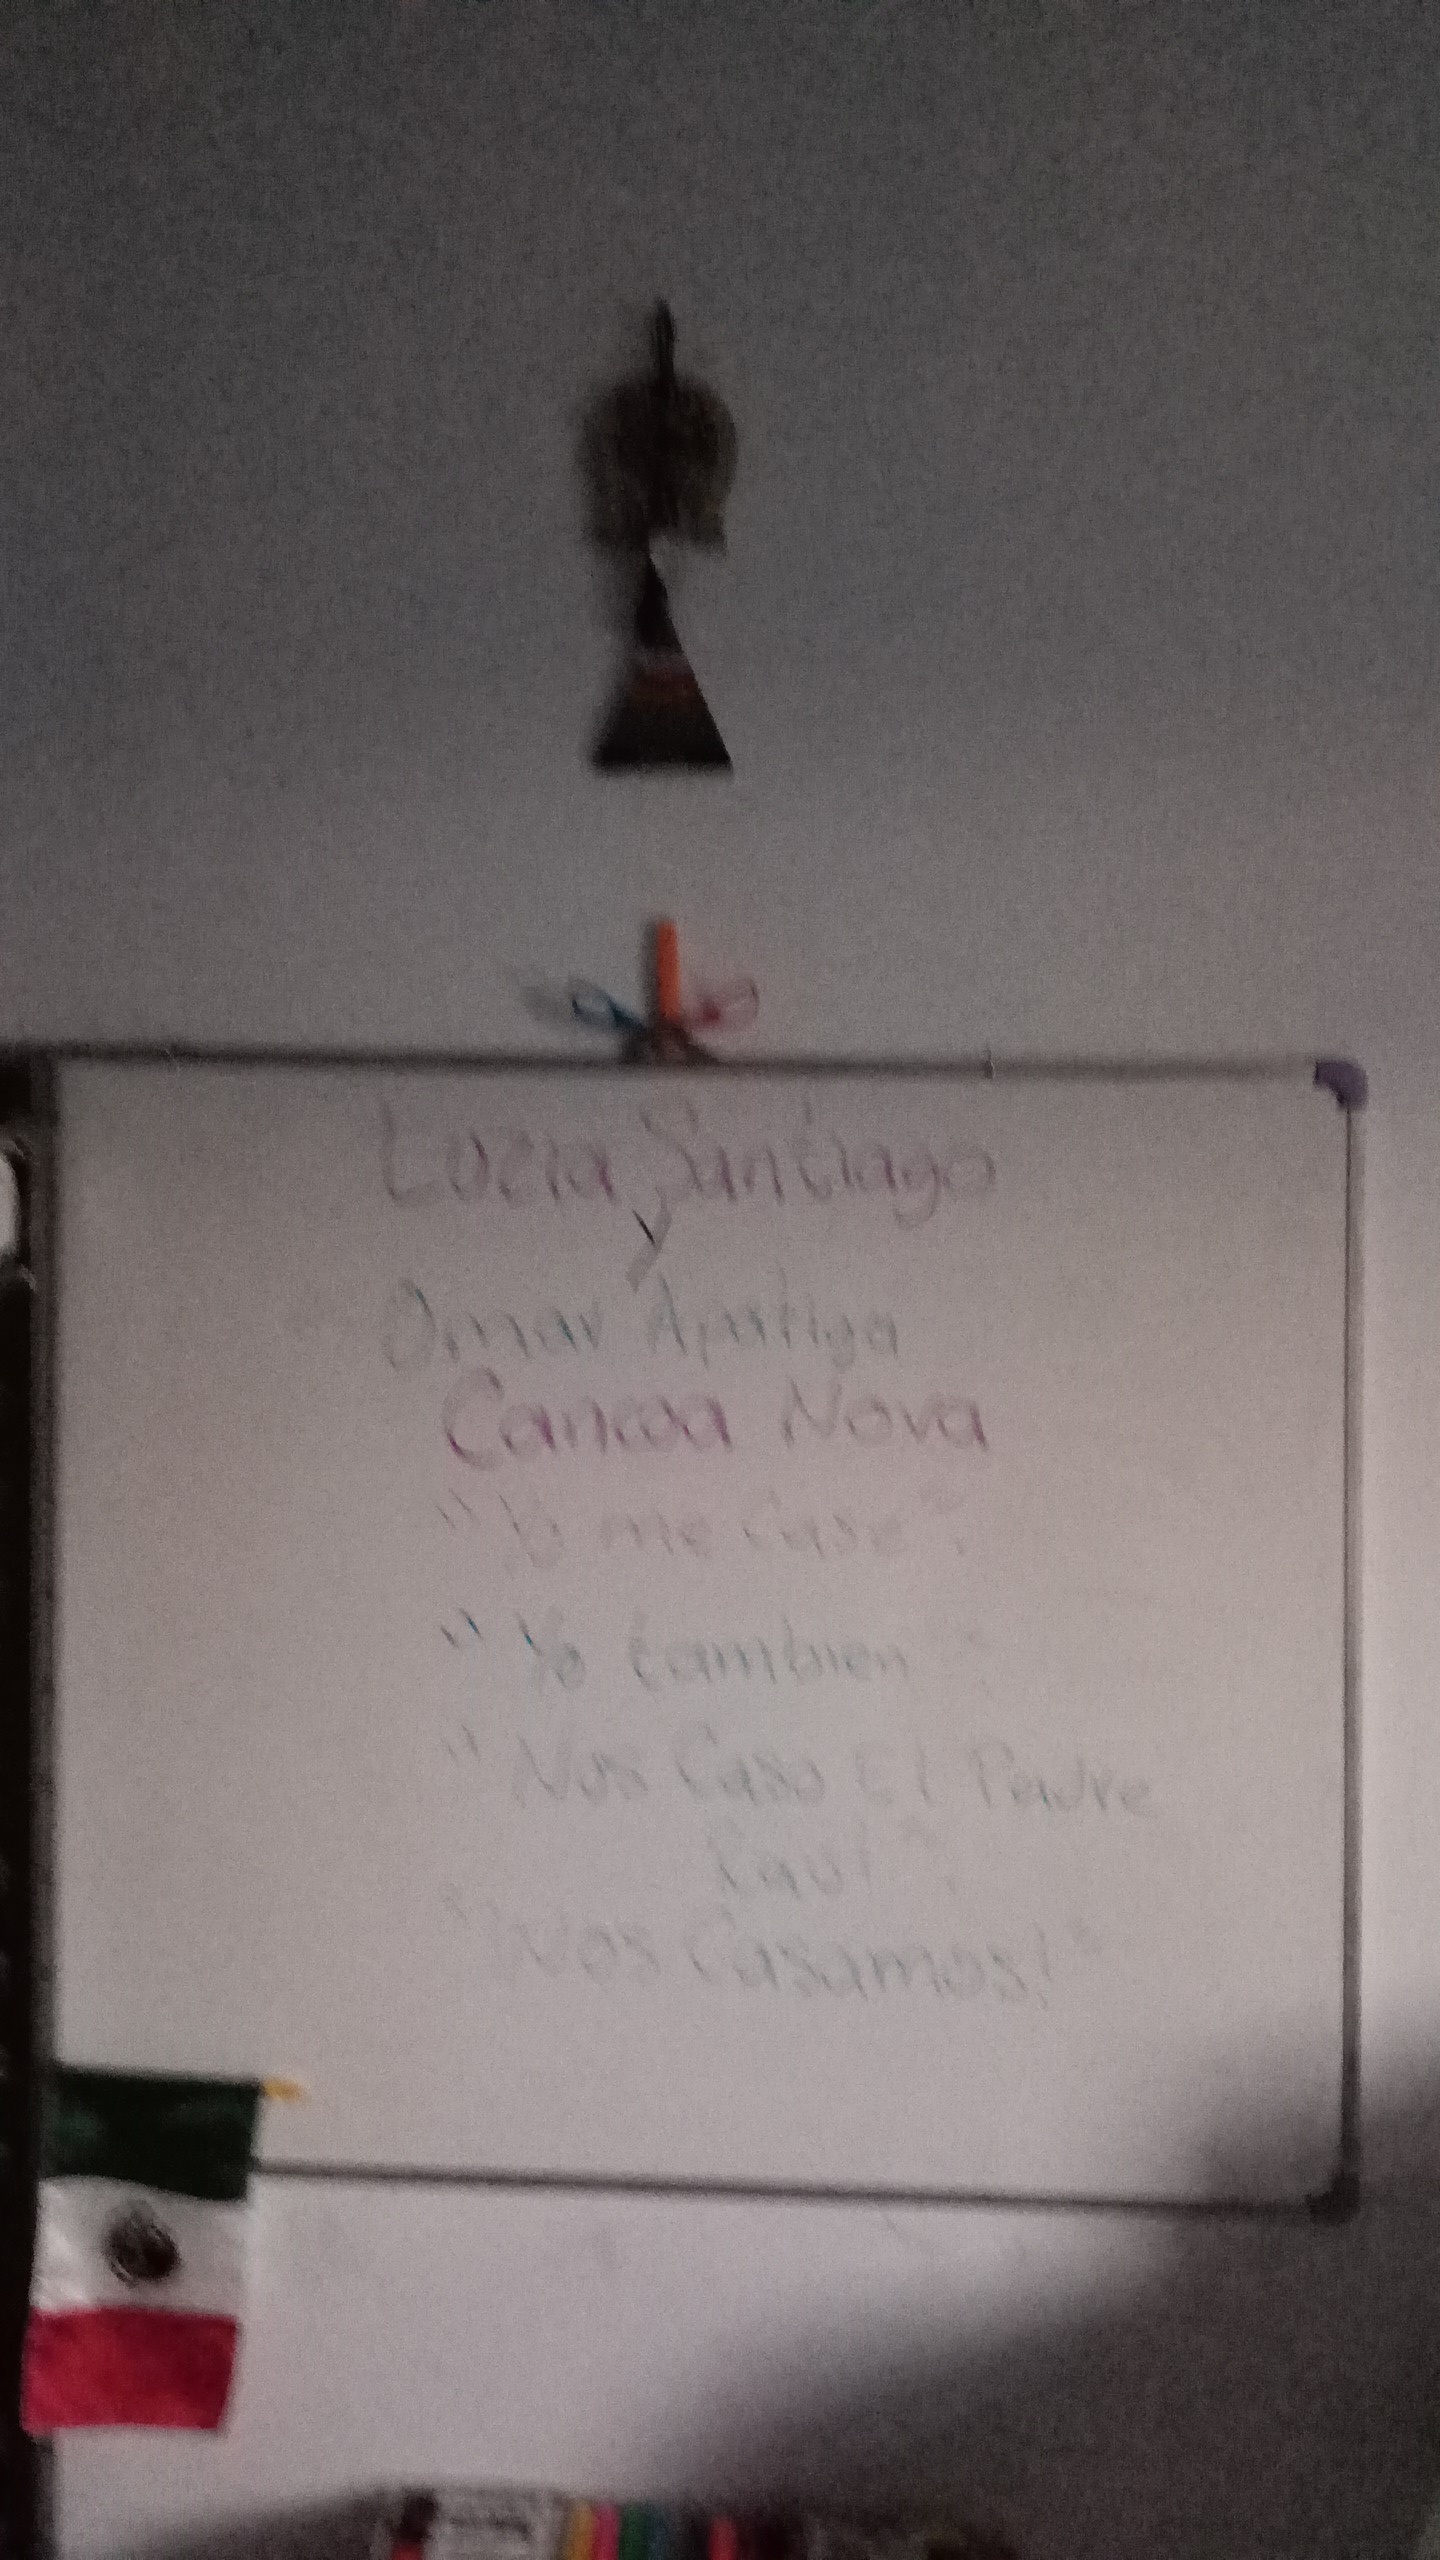 Lucia Santiago
y
Omar
Nova
"Yo me Case".
"Yo tambien".
"Nos Caso El Padre
"Nos Casamos!"